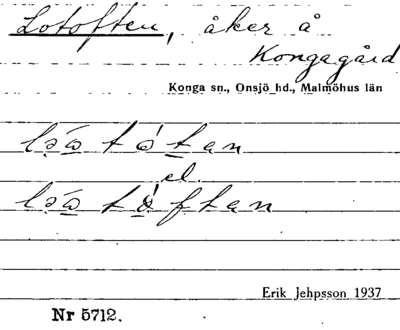 Lotoften, åker å
Kongagård
Konga sn., Onsjö hd., Malmöhus län
el.
Erik Jehpsson 1937
Nr 5712.